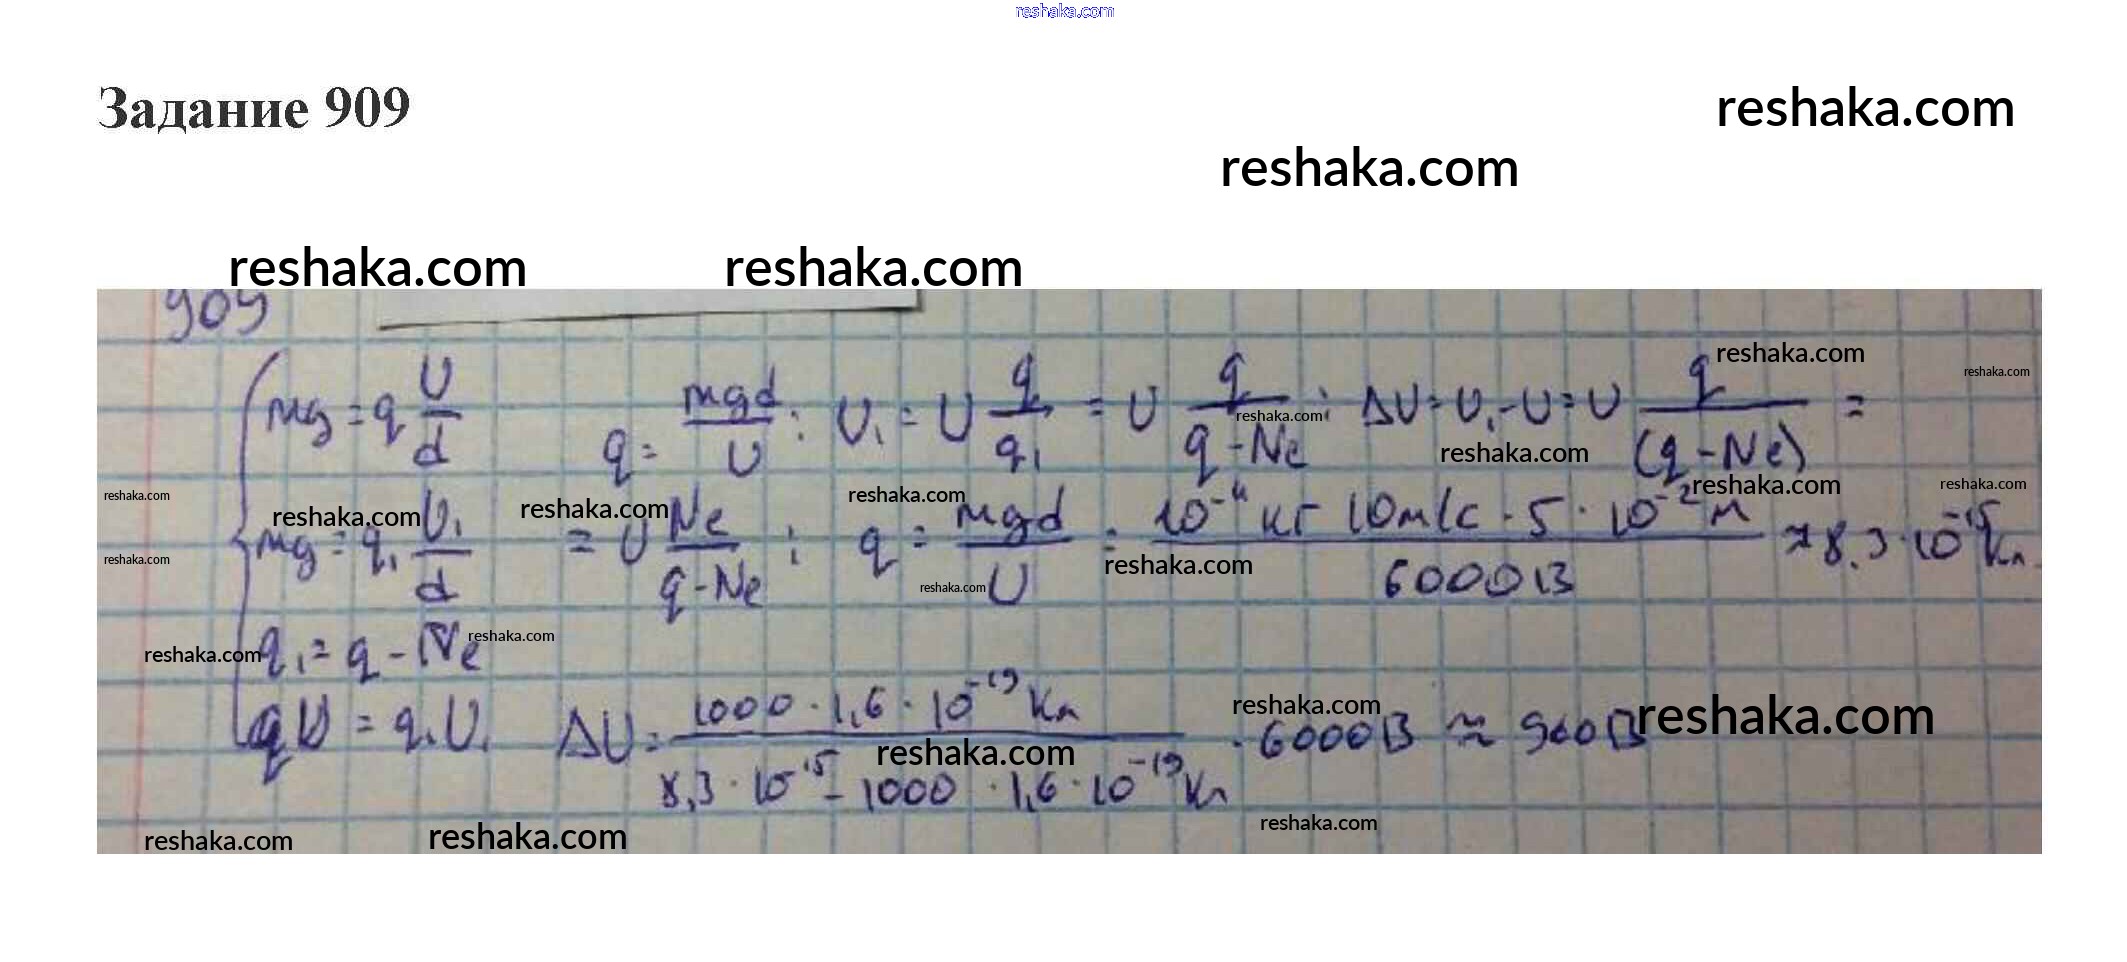 reshaka.com
Задание 909
reshaka.com
reshaka.com
reshaka.com reshaka.com
909
mg = q U/d q = mgd/U ; U₁ = U q/q₁ = U q/(q - Ne) ; ΔU = U₁ - U = U q/(q - Ne) =
mg = q₁ U₁/d = U Ne/(q - Ne) ; q = mgd/U = 10⁻¹¹ кг 10 м/с · 5 · 10⁻² м / 6000 В ≈ 8,3 · 10⁻¹⁵ Кл.
q₁ = q - Ne
qU = q₁U₁ ΔU = 1000 · 1,6 · 10⁻¹⁹ Кл / 8,3 · 10⁻¹⁵ - 1000 · 1,6 · 10⁻¹⁹ Кл · 6000 В ≈ 960 В
reshaka.com reshaka.com
reshaka.com reshaka.com
reshaka.com reshaka.com reshaka.com reshaka.com reshaka.com reshaka.com
reshaka.com reshaka.com reshaka.com
reshaka.com reshaka.com
reshaka.com reshaka.com reshaka.com
reshaka.com reshaka.com reshaka.com